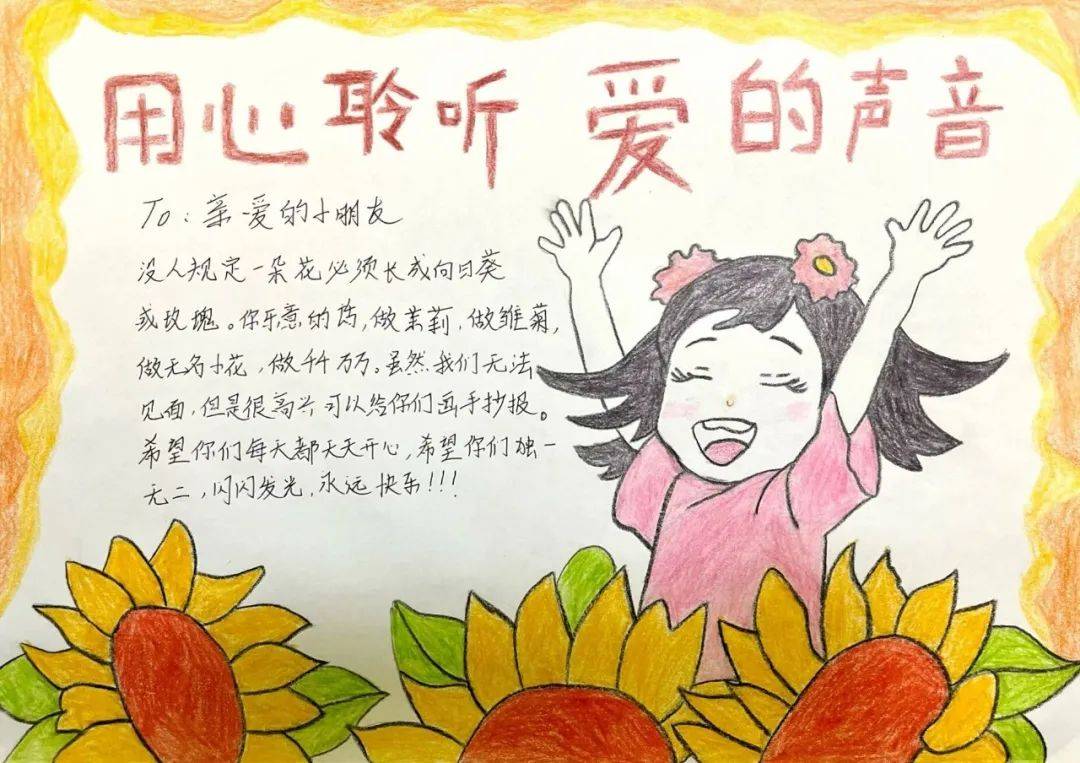 用心聆听 爱的声音
To：亲爱的小朋友
没人规定一朵花必须长成向日葵
或玫瑰。你乐意的话，做茉莉，做雏菊，
做无名小花，做千千万万。虽然我们无法
见面，但是很高兴可以给你们画手抄报。
希望你们每天都天天开心，希望你们独一
无二，闪闪发光，永远快乐!!!